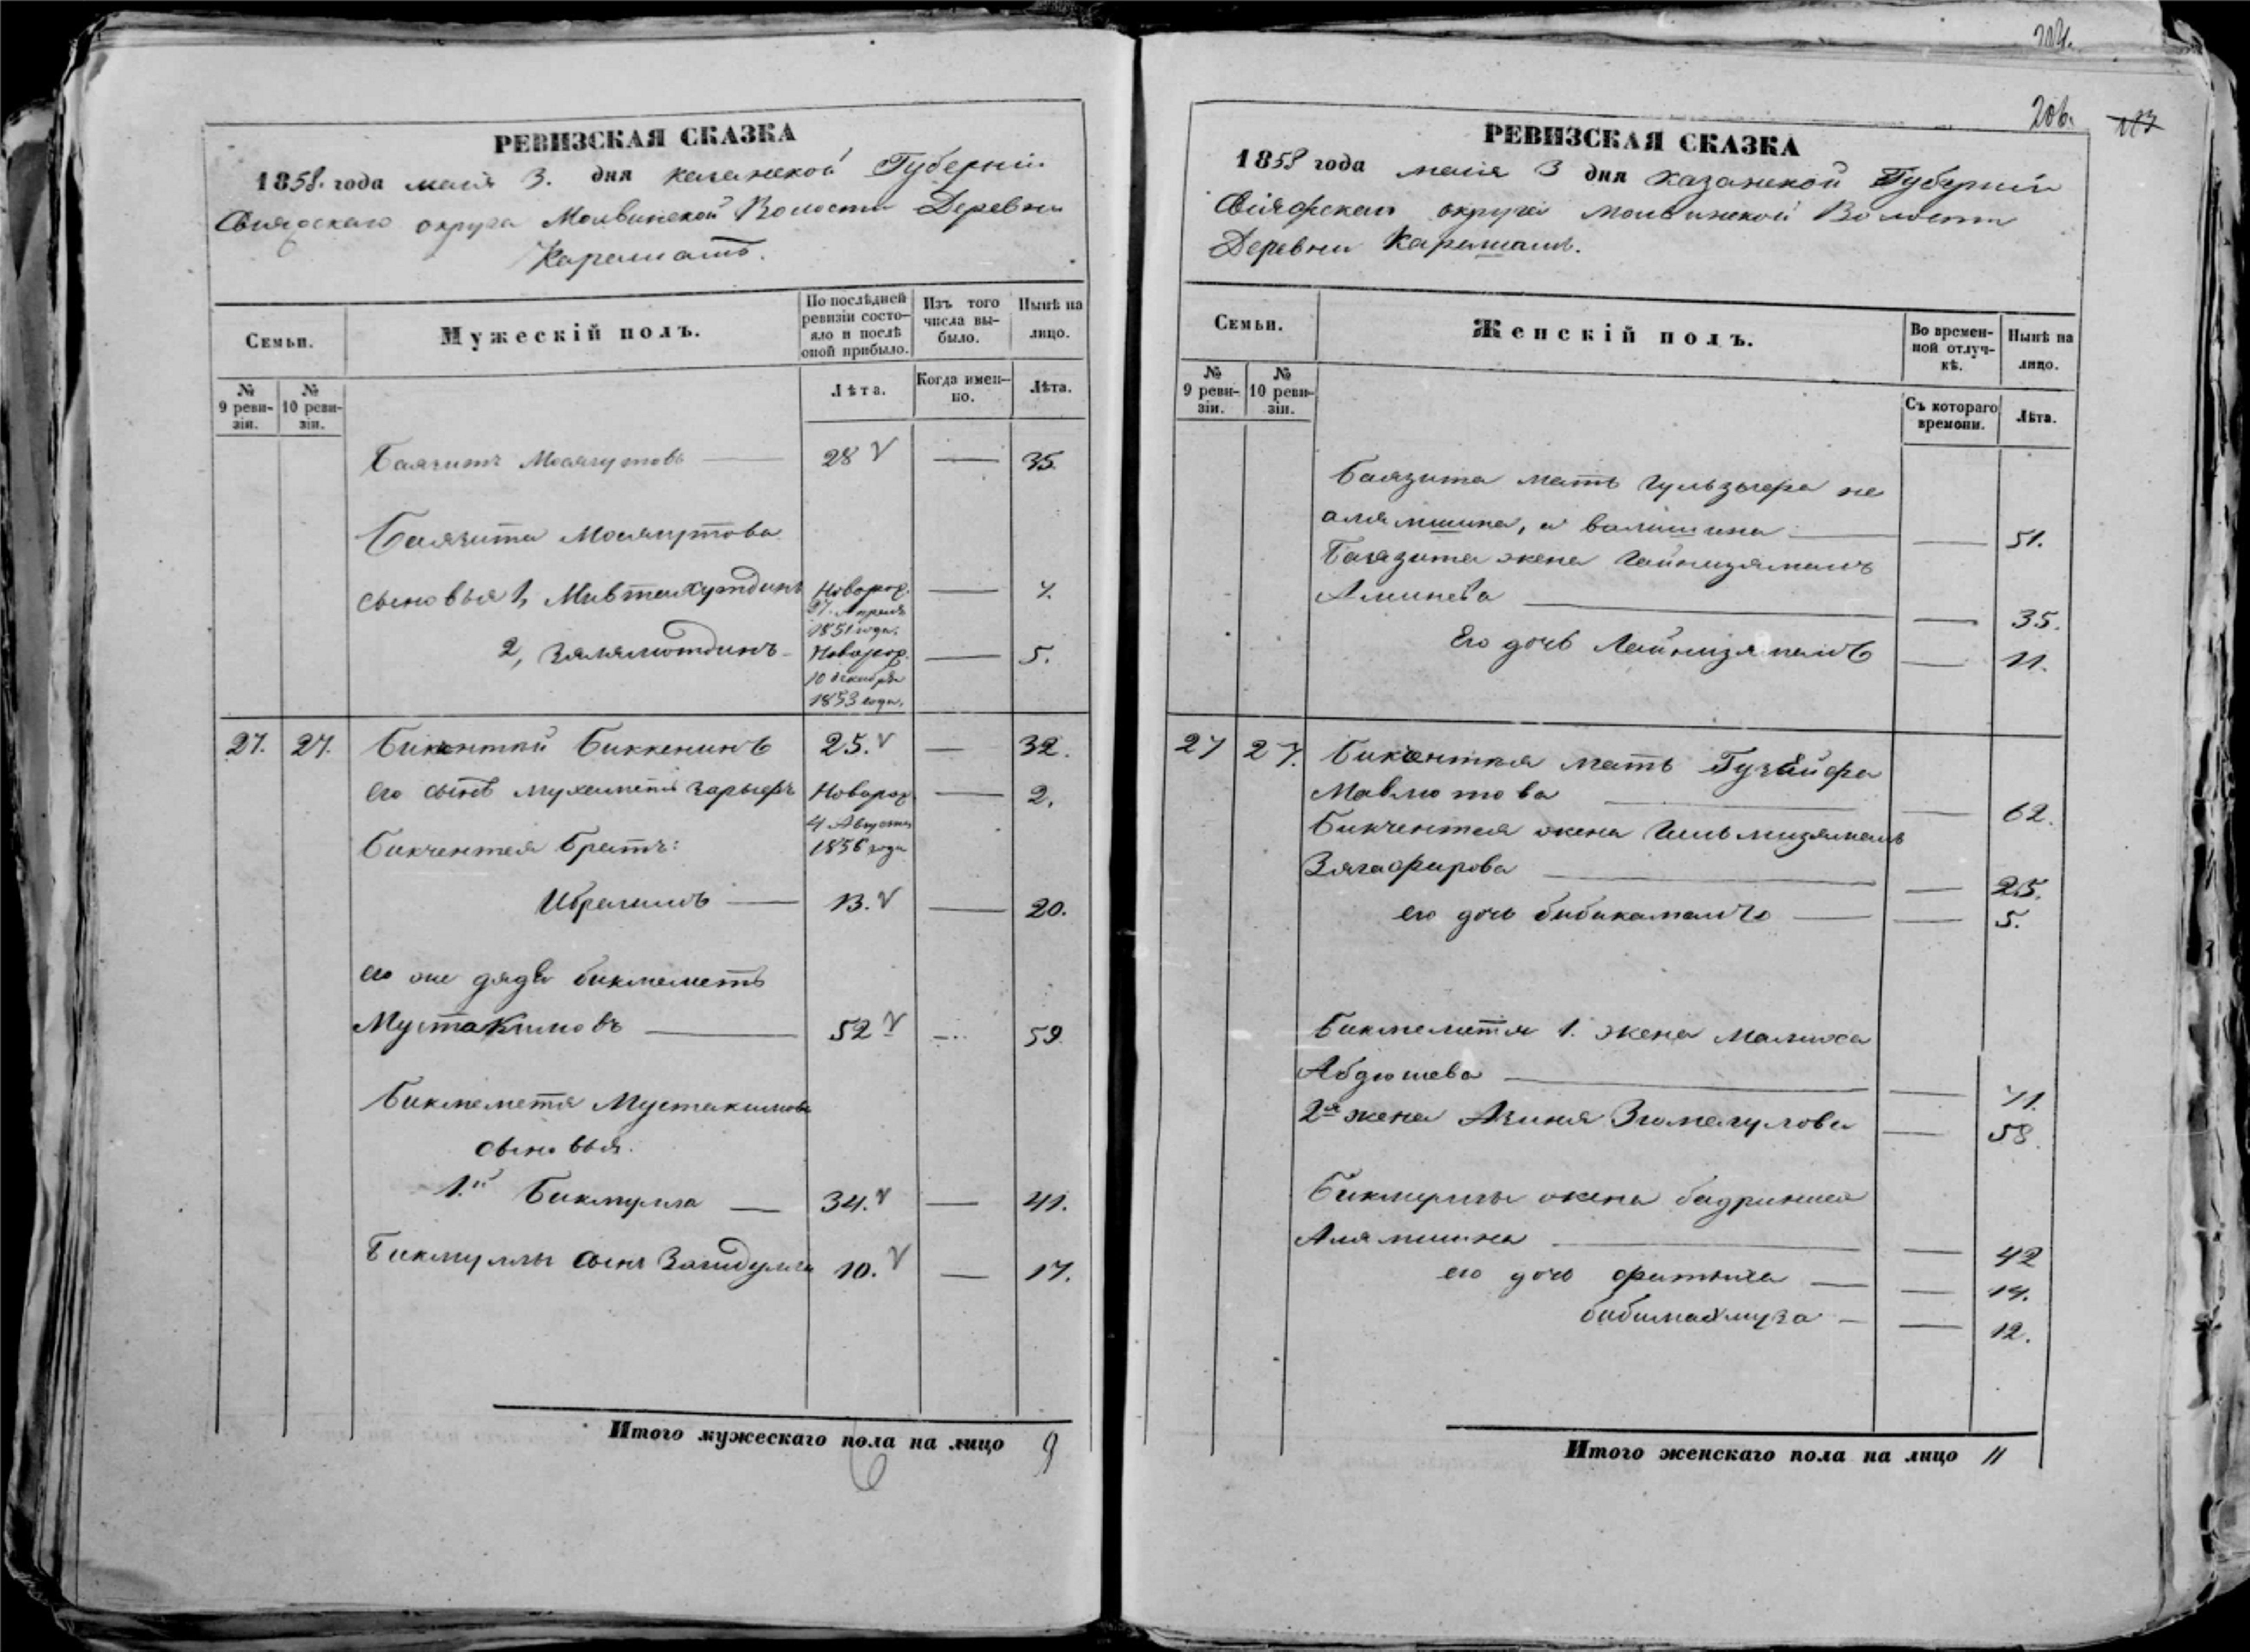 204.
206.
РЕВИЗСКАЯ СКАЗКА
1858. года маія 3. дня казанской Губерніи
Свіяжскаго округа Молвинской Волости Деревни
Карамашъ.
Семьи.
Мужескій полъ.
По послѣдней ревизіи состояло и послѣ оной прибыло.
Изъ того числа выбыло.
Нынѣ на лицо.
№ 9 ревизіи.
№ 10 ревизіи.
Лѣта.
Когда именно.
Лѣта.
Баязитъ Мосягутовъ — 28 — 35.
Баязита Мосягутова
сыновья 1, Мивтахутдинъ Новорож. 27. Апреля 1851 года. — 7.
2, Зялялютдинъ Новорож. 10 декабря 1853 года. — 5.
27. 27. Бикчентяй Биккенинъ 25. — 32.
его сынъ мухаметъ зарыфъ Новорож. 4 Августа 1856 года — 2.
Бикчентея братъ:
Ибрагимъ — 13. — 20.
его же дядя бикмеметъ
Мустакимовъ — 52 — 59.
Бикмеметя Мустакимова
сыновья.
1.й Бикмулла — 34. — 41.
Бикмуллы сынъ Загидулла 10. — 17.
Итого мужескаго пола на лицо 9
РЕВИЗСКАЯ СКАЗКА
1858 года маія 3 дня казанской Губерніи
Свіяжскаго округа молвинской Волости
Деревни Карамашъ.
Семьи.
Женскій полъ.
Во временной отлучкѣ.
Нынѣ на лицо.
№ 9 ревизіи.
№ 10 ревизіи.
Съ котораго времени.
Лѣта.
Баязита мать Гульзыфа не
алямшина, а валишина — 51.
Баязита жена Гайнизямалъ
Аминева — 35.
Его дочь Лайнизямалъ — 11.
27 27. Бикчентея мать Гузейфа
Мавлютова — 62.
Бикчентея жена Гильмизямалъ
Зягафирова — 25.
его дочь бибикамалъ — 5.
Бикмеметя 1. жена
Абдюшева — 71.
2я жена — 58.
Бикмуллы жена
Алямшина — 42
его дочь — 14.
бибимахмуза — 12.
Итого женскаго пола на лицо 11